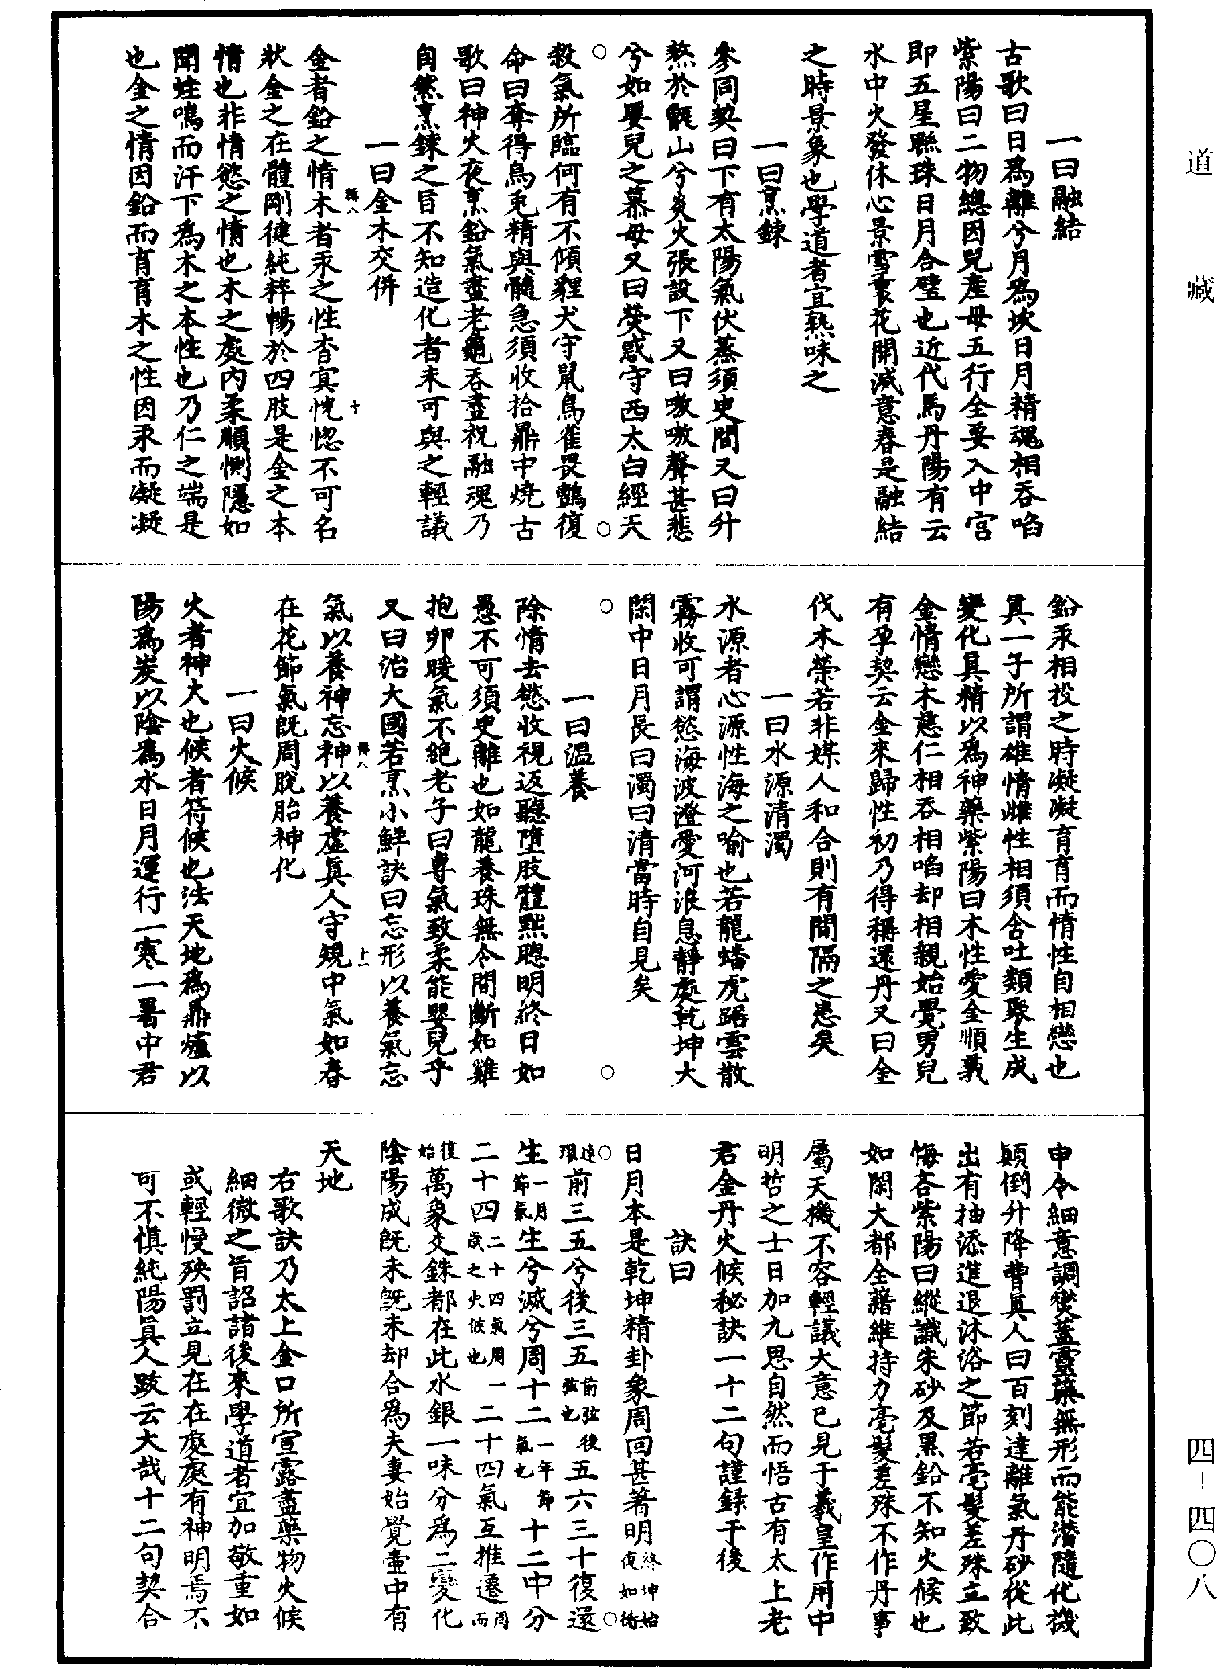 道藏
一曰融結
古歌曰日爲離兮月爲坎日月精魂相吞啗
紫陽曰二物總因兒產母五行全要入中宮
即五星聯珠日月合璧也近代馬丹陽有云
水中火發休心景雪裏花開滅意春是融結
之時景象也學道者宜熟味之
一曰烹鍊
參同契曰下有太陽氣伏蒸須臾間又曰升
熬於甑山兮炎火張設下又曰嗷嗷聲甚悲
兮如嬰兒之慕母又曰熒惑守西太白經天
殺氣所臨何有不傾貍犬守鼠鳥雀畏鸇復
命曰奪得烏兎精與髓急須收拾鼎中燒古
歌曰神火夜烹鉛氣盡老龜吞盡祝融魂乃
自然烹鍊之旨不知造化者未可與之輕議
一曰金木交併
金者鉛之情木者汞之性杳冥恍惚不可名
狀金之在體剛健純粹暢於四肢是金之本
情也非情慾之情也木之處內柔順惻隱如
聞蛙鳴而汗下爲木之本性也乃仁之端是
也金之情因鉛而育育木之性因汞而凝凝
鉛汞相投之時凝凝育育而情性自相戀也
其一子所謂雄情雌性相須含吐類聚生成
變化真精以爲神藥紫陽曰木性愛金順義
金情戀木慈仁相吞相啗却相親始覺男兒
有孕契云金來歸性初乃得稱還丹又曰金
伐木榮若非媒人和合則有間隔之患矣
一曰水源清濁
水源者心源性海之喻也若龍蟠虎踞雲散
霧收可謂慾海波澄愛河浪息靜處乾坤大
閑中日月長曰濁曰清當時自見矣
一曰溫養
除情去慾收視返聽墮肢體黜聰明終日如
愚不可須臾離也如龍養珠無令間斷如雞
抱卵暖氣不絶老子曰專氣致柔能嬰兒乎
又曰治大國若烹小鮮訣曰忘形以養氣忘
氣以養神忘神以養虛真人守規中氣如春
在花節氣旣周脫胎神化
一曰火候
火者神火也候者符候也法天地爲鼎爐以
陽爲炭以陰爲水日月運行一寒一暑中君
申令細意調燮蓋靈藥無形而能潛隨化機
顛倒升降曹真人曰百刻達離氣丹砂從此
出有抽添進退沐浴之節若毫髮差殊立致
悔吝紫陽曰縱識朱砂及黑鉛不知火候也
如閑大都全藉維持力毫髮差殊不作丹事
屬天機不容輕議大意已見于羲皇作用中
明哲之士日加九思自然而悟古有太上老
君金丹火候秘訣一十二句謹録于後
訣曰
日月本是乾坤精卦象周回甚著明終坤始復如循
連環前三五兮後三五前弦後弦也五六三十復還
生一月節氣生兮滅兮周十二一年節氣也十二中分
二十四二十四氣周一歲之火候也二十四氣互推遷周而
復始萬象交銖都在此水銀一味分爲二變化
陰陽成旣未旣未却合爲夫妻始覺壷中有
天地
右歌訣乃太上金口所宣露盡藥物火候
細微之旨詔諸後來學道者宜加敬重如
或輕慢殃罰立見在在處處有神明焉不
可不慎純陽真人跋云大哉十二句契合
四-四〇八